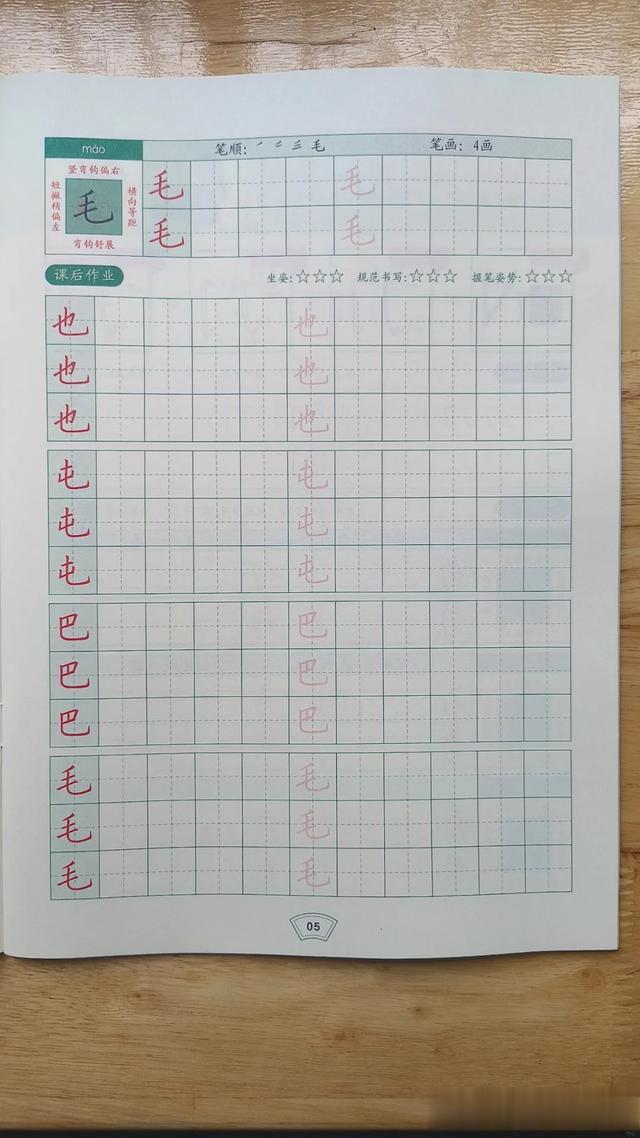 máo 笔顺: ㇒ 二 三 毛 笔画: 4画
竖弯钩偏右
短撇稍偏左
毛
横向等距
弯钩舒展
毛 毛
毛 毛
课后作业 坐姿:☆☆☆ 规范书写:☆☆☆ 握笔姿势:☆☆☆
也 也
也 也
也 也
屯 屯
屯 屯
屯 屯
巴 巴
巴 巴
巴 巴
毛 毛
毛 毛
毛 毛
05